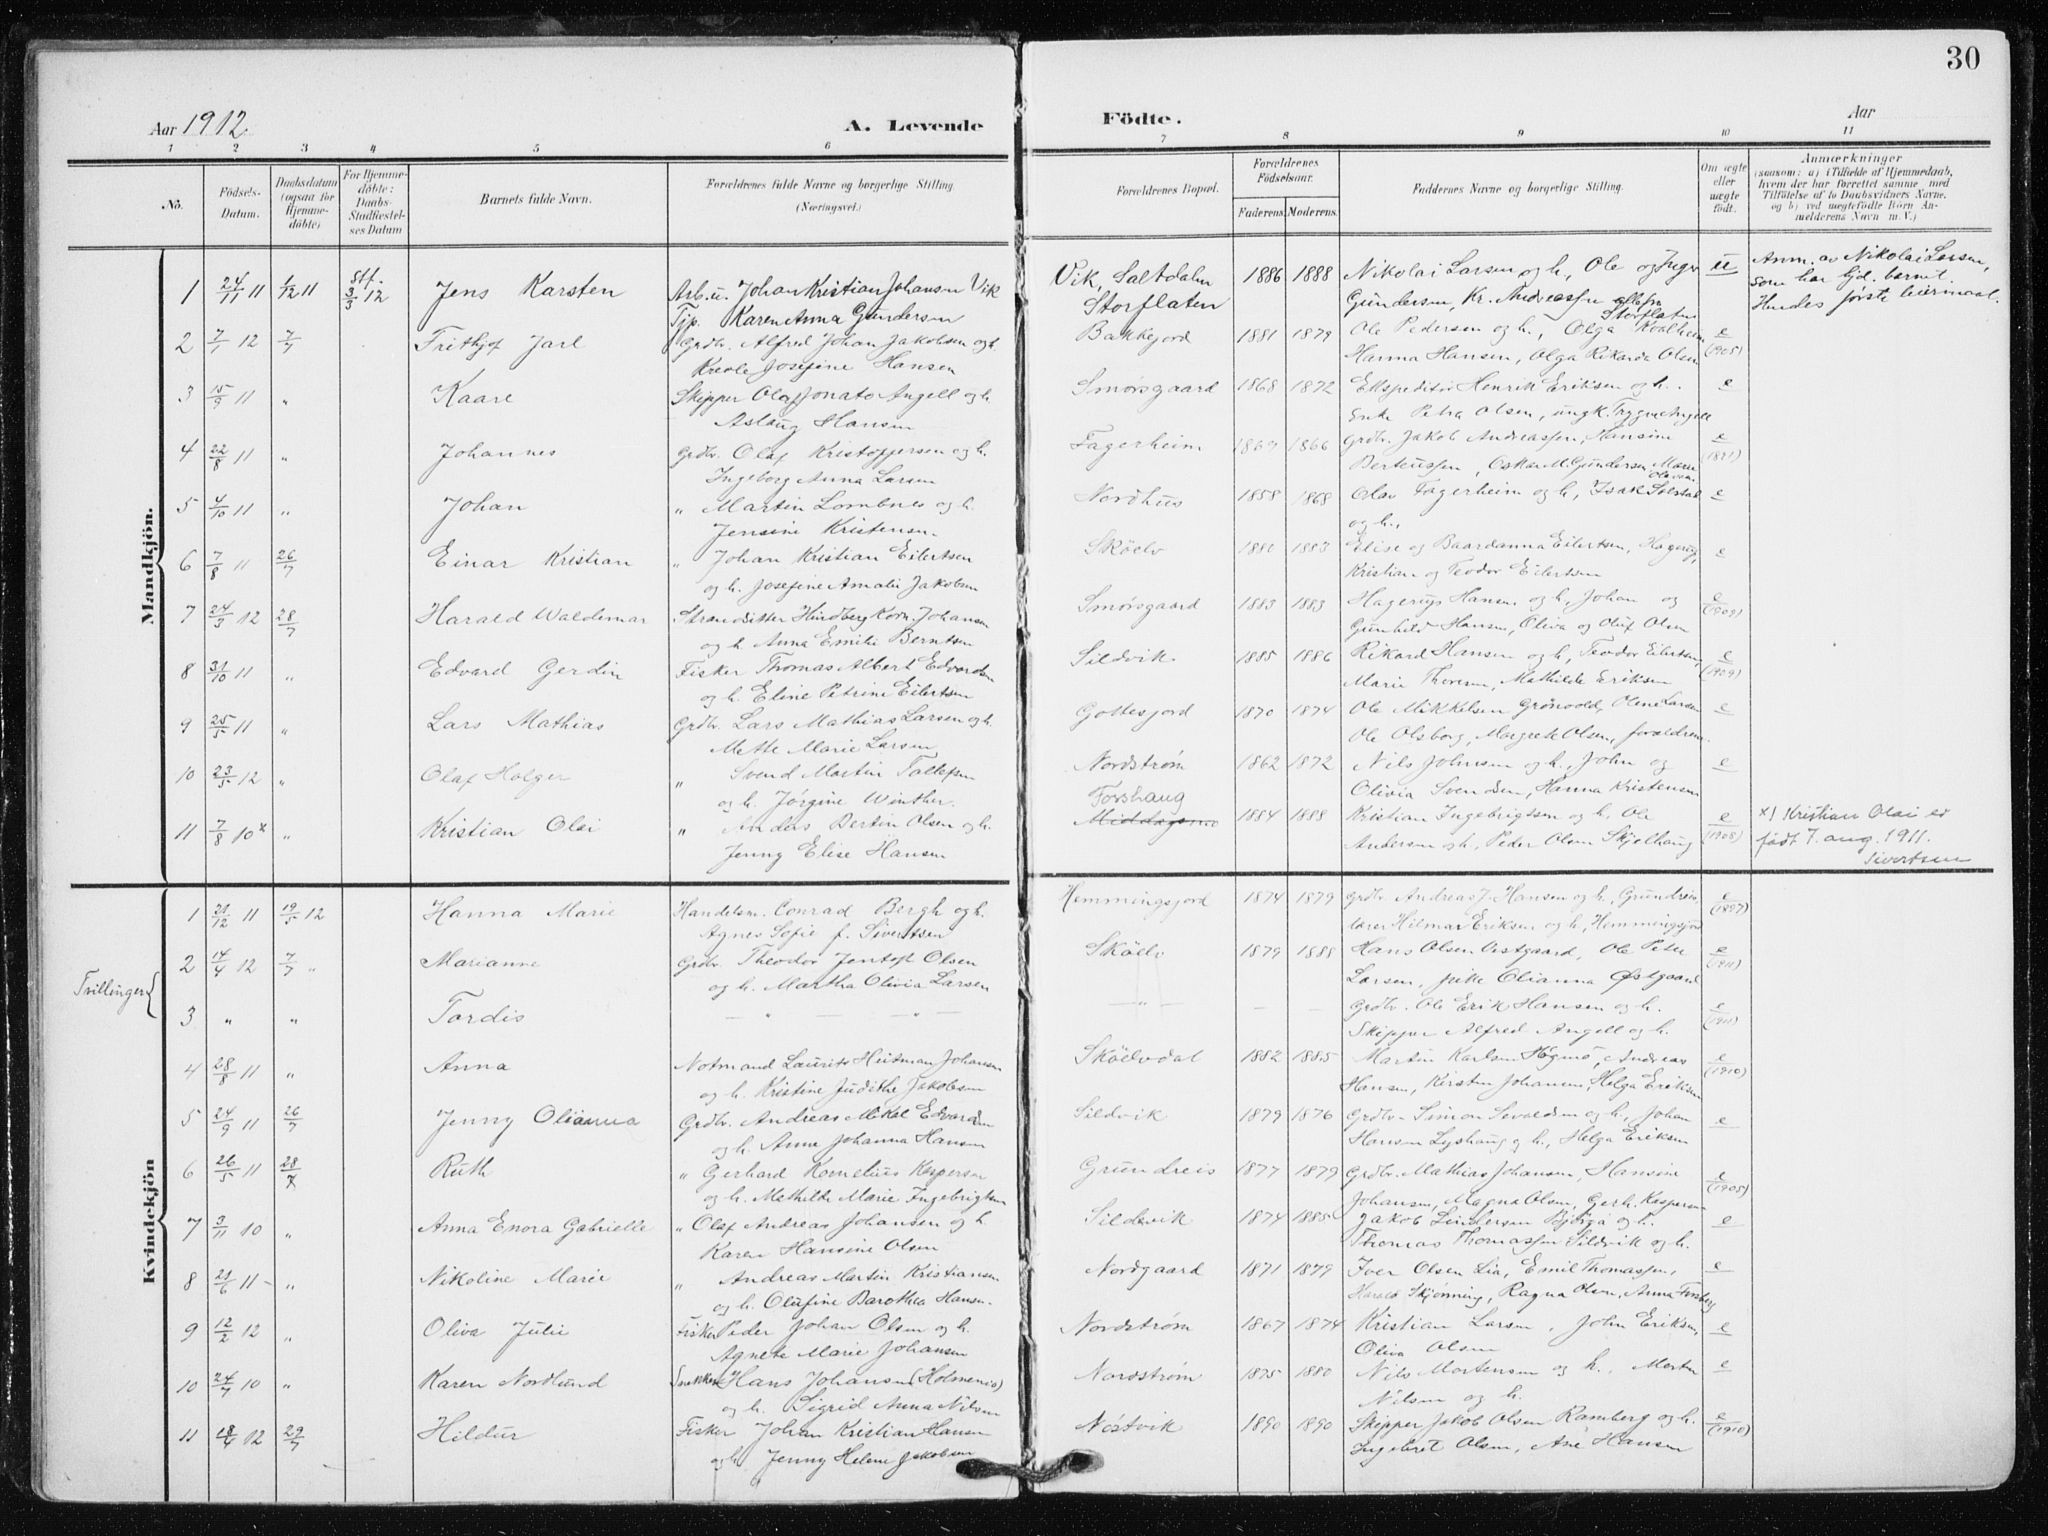 30
Aar 1912
A. Levende
Födte.
Aar
1 2 3 4 5 6 7 8 9 10 11
No.
Födsels-
Datum.
Daabsdatum
(ogsaa for
Hjemme-
döbte)
For Hjemme-
döbte:
Daabs-
Stadfæstel-
ses Datum
Barnets fulde Navn.
Forældrenes fulde Navne og borgerlige Stilling.
(Næringsvei.)
Forældrenes Bopæl.
Forældrenes
Födselsaar.
Faderens. Moderens.
Faddernes Navne og borgerlige Stilling.
Om ægte
eller
uægte
født.
Anmærkninger
(saasom: a) i Tilfælde af Hjemmedaab,
hvem der har forrettet samme med
Tilföielse af to Daabsvidners Navne,
og b) ved uægtefödte Börn An-
melderens Navn m. V.)
Mandkjön.
1 24/11 11 1/12 11 Stf. 3/3 12 Jens Karsten Arb. u. Johan Kristian Johansen Vik Vik, Saltdalen 1886 1888 Nikolai Larsen og h, Ole og Inger u Anm. av Nikolai Larsen,
Tjp. Karen Anna Gundersen Storflaten Gundersen, Kr. Andreassen alle fra Storflaten som har hjd. barnet.
Hendes første leiermaal.
2 7/1 12 7/7 Frithjof Jarl Grdbr. Alfred Johan Jakobsen og h. Bakkejord 1881 1879 Ole Pedersen og h, Olga e
Josefine Hansen Hanna Hansen, Olga Rikarda Olsen (1905)
3 15/9 11 " Kaare Skipper Olaf Jonato Angell og h. Smørsgaard 1868 1872 Ekspeditør Henrik Eriksen og h. e
Aslaug Hansen Enke Petra Olsen, ungk. Trygve Angell
4 22/8 11 " Johannes Grdbr. Olaf Kristoffersen og h. Fagerheim 1869 1866 Grdbr. Jakob Andreassen, Hansine e
Ingeborg Anna Larsen Berteussen, Oskar M. Gundersen, Maren Olavsen
5 4/10 11 " Johan " Martin Lombnes og h. Nordhus 1858 1868 Olav Fagerheim og h, Isak Solstad e
Jensine Kristensen. og h.,
6 7/8 11 26/7 Einar Kristian " Johan Kristian Eilertsen Sköelv 1880 1883 Elise og Baardanna Eilertsen, Hagerup, e
og h. Josefine Amalie Jakobsen Kristian og Teodor Eilertsen
7 24/3 12 28/7 Harald Waldemar Strandsitter Hindberg Korn. Johansen Smørsgaard 1883 1883 Hagerup Hansen og h, Johan og e (1909)
og h. Anna Emilie Berntsen Gunhild Hansen, Oliva og Oluf Olsen
8 31/10 11 " Edvard Gerdin Fisker Thomas Albert Edvardsen Sildvik 1885 1886 Rikard Hansen og h, Teodor Eilertsen, e (1909)
og h. Eline Petrine Eilertsen Marie Thoresen, Mathilde Eriksen
9 25/5 11 " Lars Mathias Grdbr. Lars Mathias Larsen og h. Gottesjord 1870 1874 Ole Mikkelsen Grönvold, Olene Larsen e
Mette Marie Larsen Ole Olsborg, Margrete Olsen, forældrene.
10 23/5 12 " Olaf Holger " Svend Martin Tollefsen Nordstrøm 1862 1872 Nils Johnsen og h, John og e
og h. Jørgine Winther. Olivia Svendsen, Hanna Kristensen
11 7/8 10x " Kristian Olai " Anders Bertin Olsen og h. Forshaug Middagsnes 1884 1888 Kristian Ingebrigtsen og h. Ole e (1908) x) Kristian Olai er
Jenny Elise Hansen Andersen og h., Peder Olsen Skjelhaug født 7. aug. 1911.
Sivertsen
Kvindekjön
1 21/12 11 19/5 12 Hanna Marie Handelsm. Conrad Bergh og h. Hemmingsjord 1874 1879 Grdbr Andreas J. Hansen og h, Grundreis, e (1897)
Agnes Sofie f. Sivertsen lærer Hilmar Eriksen og h, Hemmingsjord
Tvillinger
2 14/4 12 7/7 " Marianne Grdbr. Theodor Jentoft Olsen Sköelv 1879 1888 Hans Olsen Vestgaard, Ole Peter e (1911)
og h. Martha Olivia Larsen Larsen, pike Olianna Østgaard
3 " " Tordis — " — — " — — " — — — Grdbr. Ole Erik Hansen og h. e (1911)
Skipper Alfred Angell og h.
4 28/8 11 " Anna Notmand Laurits Heitman Johansen Sköelvdal 1882 1885 Martin Karlsen Høgmo, Andreas e (1910)
og h. Kristine Judithe Jakobsen Hansen, Kirsten Johansen, Helga Eriksen
5 24/9 11 26/7 Jenny Olianna Grdbr. Andreas Mikal Edvardsen Sildvik 1879 1876 Grdbr. Simon Sevaldsen og h, Johan e
og h. Anna Johanna Hansen Hansen Lyshaug og h., Helga Eriksen
6 26/5 11 28/7 Ruth " Gerhard Kornelius Kaspersen Grundreis 1877 1879 Grdbr. Mathias Johansen, Hansine e (1905)
og h. Mathilde Marie Ingebrigtsen Johansen, Magna Olsen, Gerh. Kaspersen
7 3/11 10 " Anna Enora Gabrielle " Olaf Andreas Johansen og h. Sildvik 1874 1885 Jakob Lindersen Bjorga og h. e
Karen Hansine Olsen Thomas Thomassen Sildvik og h.
8 21/6 11 " Nikoline Marie " Andreas Martin Kristiansen Nordgaard 1871 1879 Iver Olsen Lia, Emil Thomassen, e
og h. Olufine Barothea Hansen. Harald Skjønning, Ragna Olsen, Anna Forsberg
9 12/2 12 " Oliva Julie Fisker Peder Johan Olsen og h. Nordstrøm 1867 1874 Kristian Larsen, John Eriksen, e
Agnete Marie Johansen Oliva Olsen
10 24/7 10 " Karen Nordlund Snekker Hans Johansen (Holmenes) Nordstrøm 1875 1880 Nils Mortensen og h., Morten e
og h. Sigrid Anna Nilsen Nilsen og h.
11 18/4 12 29/7 Hildur Fisker Johan Kristian Hansen Nøstvik 1890 1890 Skipper Jakob Olsen Ramberg og h. e (1910)
og h. Jenny Helene Jakobsen Ingebret Olsen, Ane Hansen